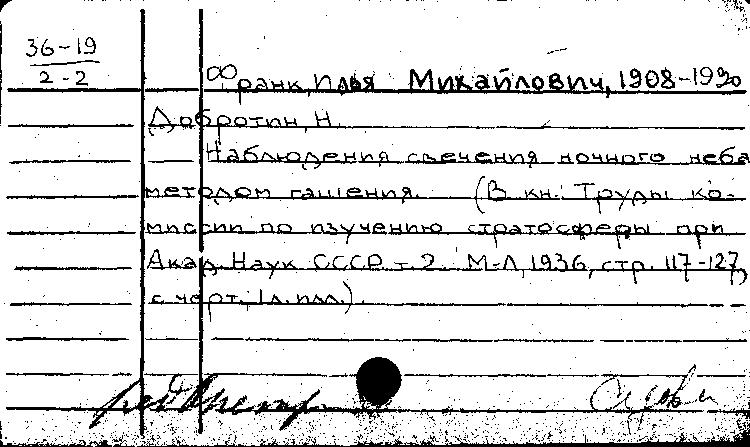 36-19
2-2
Франк, Илья Михайлович, 1908-1990
Добротин, Н.
Наблюдения свечения ночного неба
методом гашения. (В кн.: Труды ко-
миссии по изучению стратосферы при
Акад. Наук СССР т. 2. М-Л, 1936, стр. 117-127,
с черт., 1 л. илл.).